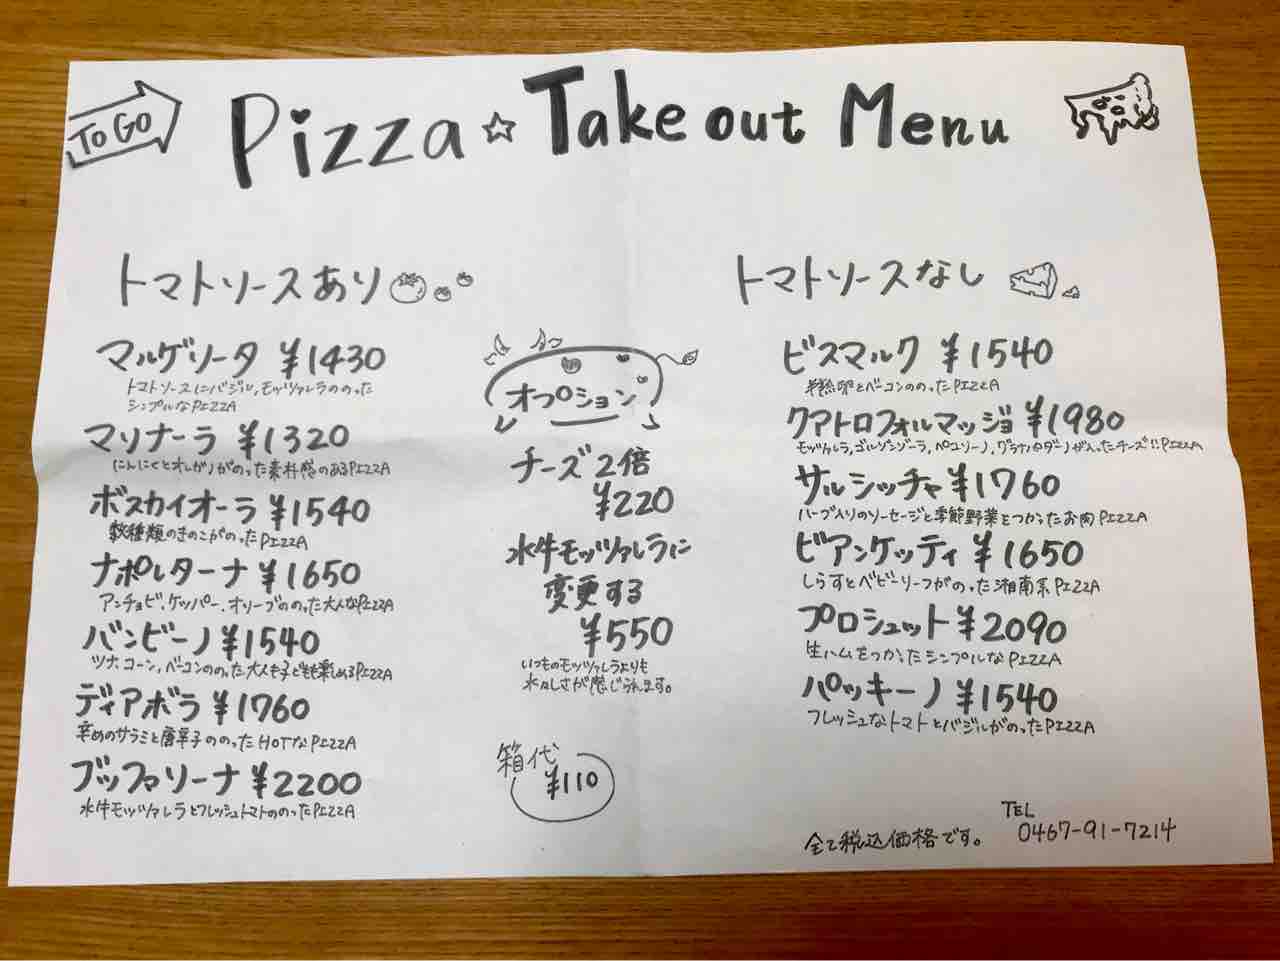 To GO
Pizza☆Take out Menu
トマトソースあり
マルゲリータ ¥1430
トマトソースにバジル、モッツァレラののった
シンプルなPIZZA
マリナーラ ¥1320
にんにくとオレガノがのった素朴感のあるPIZZA
ボスカイオーラ ¥1540
数種類のきのこがのったPIZZA
ナポレターナ ¥1650
アンチョビ、ケッパー、オリーブののった大人なPIZZA
バンビーノ ¥1540
ツナ、コーン、ベーコンののった大人も子どもも楽しめるPIZZA
ディアボラ ¥1760
辛めのサラミと唐辛子ののったHOTなPIZZA
ブッファリーナ ¥2200
水牛モッツァレラとフレッシュトマトののったPIZZA
オプション
チーズ2倍
¥220
水牛モッツァレラに
変更する
¥550
いつものモッツァレラよりも
水々しさが感じられます。
箱代
¥110
トマトソースなし
ビスマルク ¥1540
半熟卵とベーコンののったPIZZA
クアトロフォルマッジョ ¥1980
モッツァレラ、ゴルゴンゾーラ、ペコリーノ、グラナパダーノが入ったチーズ!!PIZZA
サルシッチャ ¥1760
ハーブ入りのソーセージと季節野菜をつかったお肉PIZZA
ビアンケッティ ¥1650
しらすとベビーリーフがのった湘南系PIZZA
プロシュット ¥2090
生ハムをつかったシンプルなPIZZA
パッキーノ ¥1540
フレッシュなトマトとバジルがのったPIZZA
全て税込価格です。
TEL
0467-91-7214